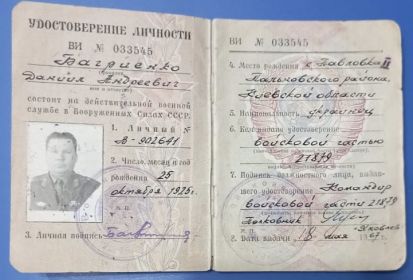 УДОСТОВЕРЕНИЕ ЛИЧНОСТИ
ВИ № 033545
Багриенко
Даниил Андреевич
состоит на действительной военной
службе в Вооруженных Силах СССР.
1. Личный №
А-902641
2. Число, месяц и год
рождения 25
октября 1925 г.
3. Личная подпись
ВИ № 033545
4. Место рождения с. Павловка II
Тальновского района,
Киевской области
5. Национальность украинец
6. Кем выдано удостоверение
войсковой частью
21879
7. Подпись должностного лица, выдав-
шего удостоверение Командир
войсковой части 21879
Полковник
8. Дата выдачи 8 мая 1967 г.